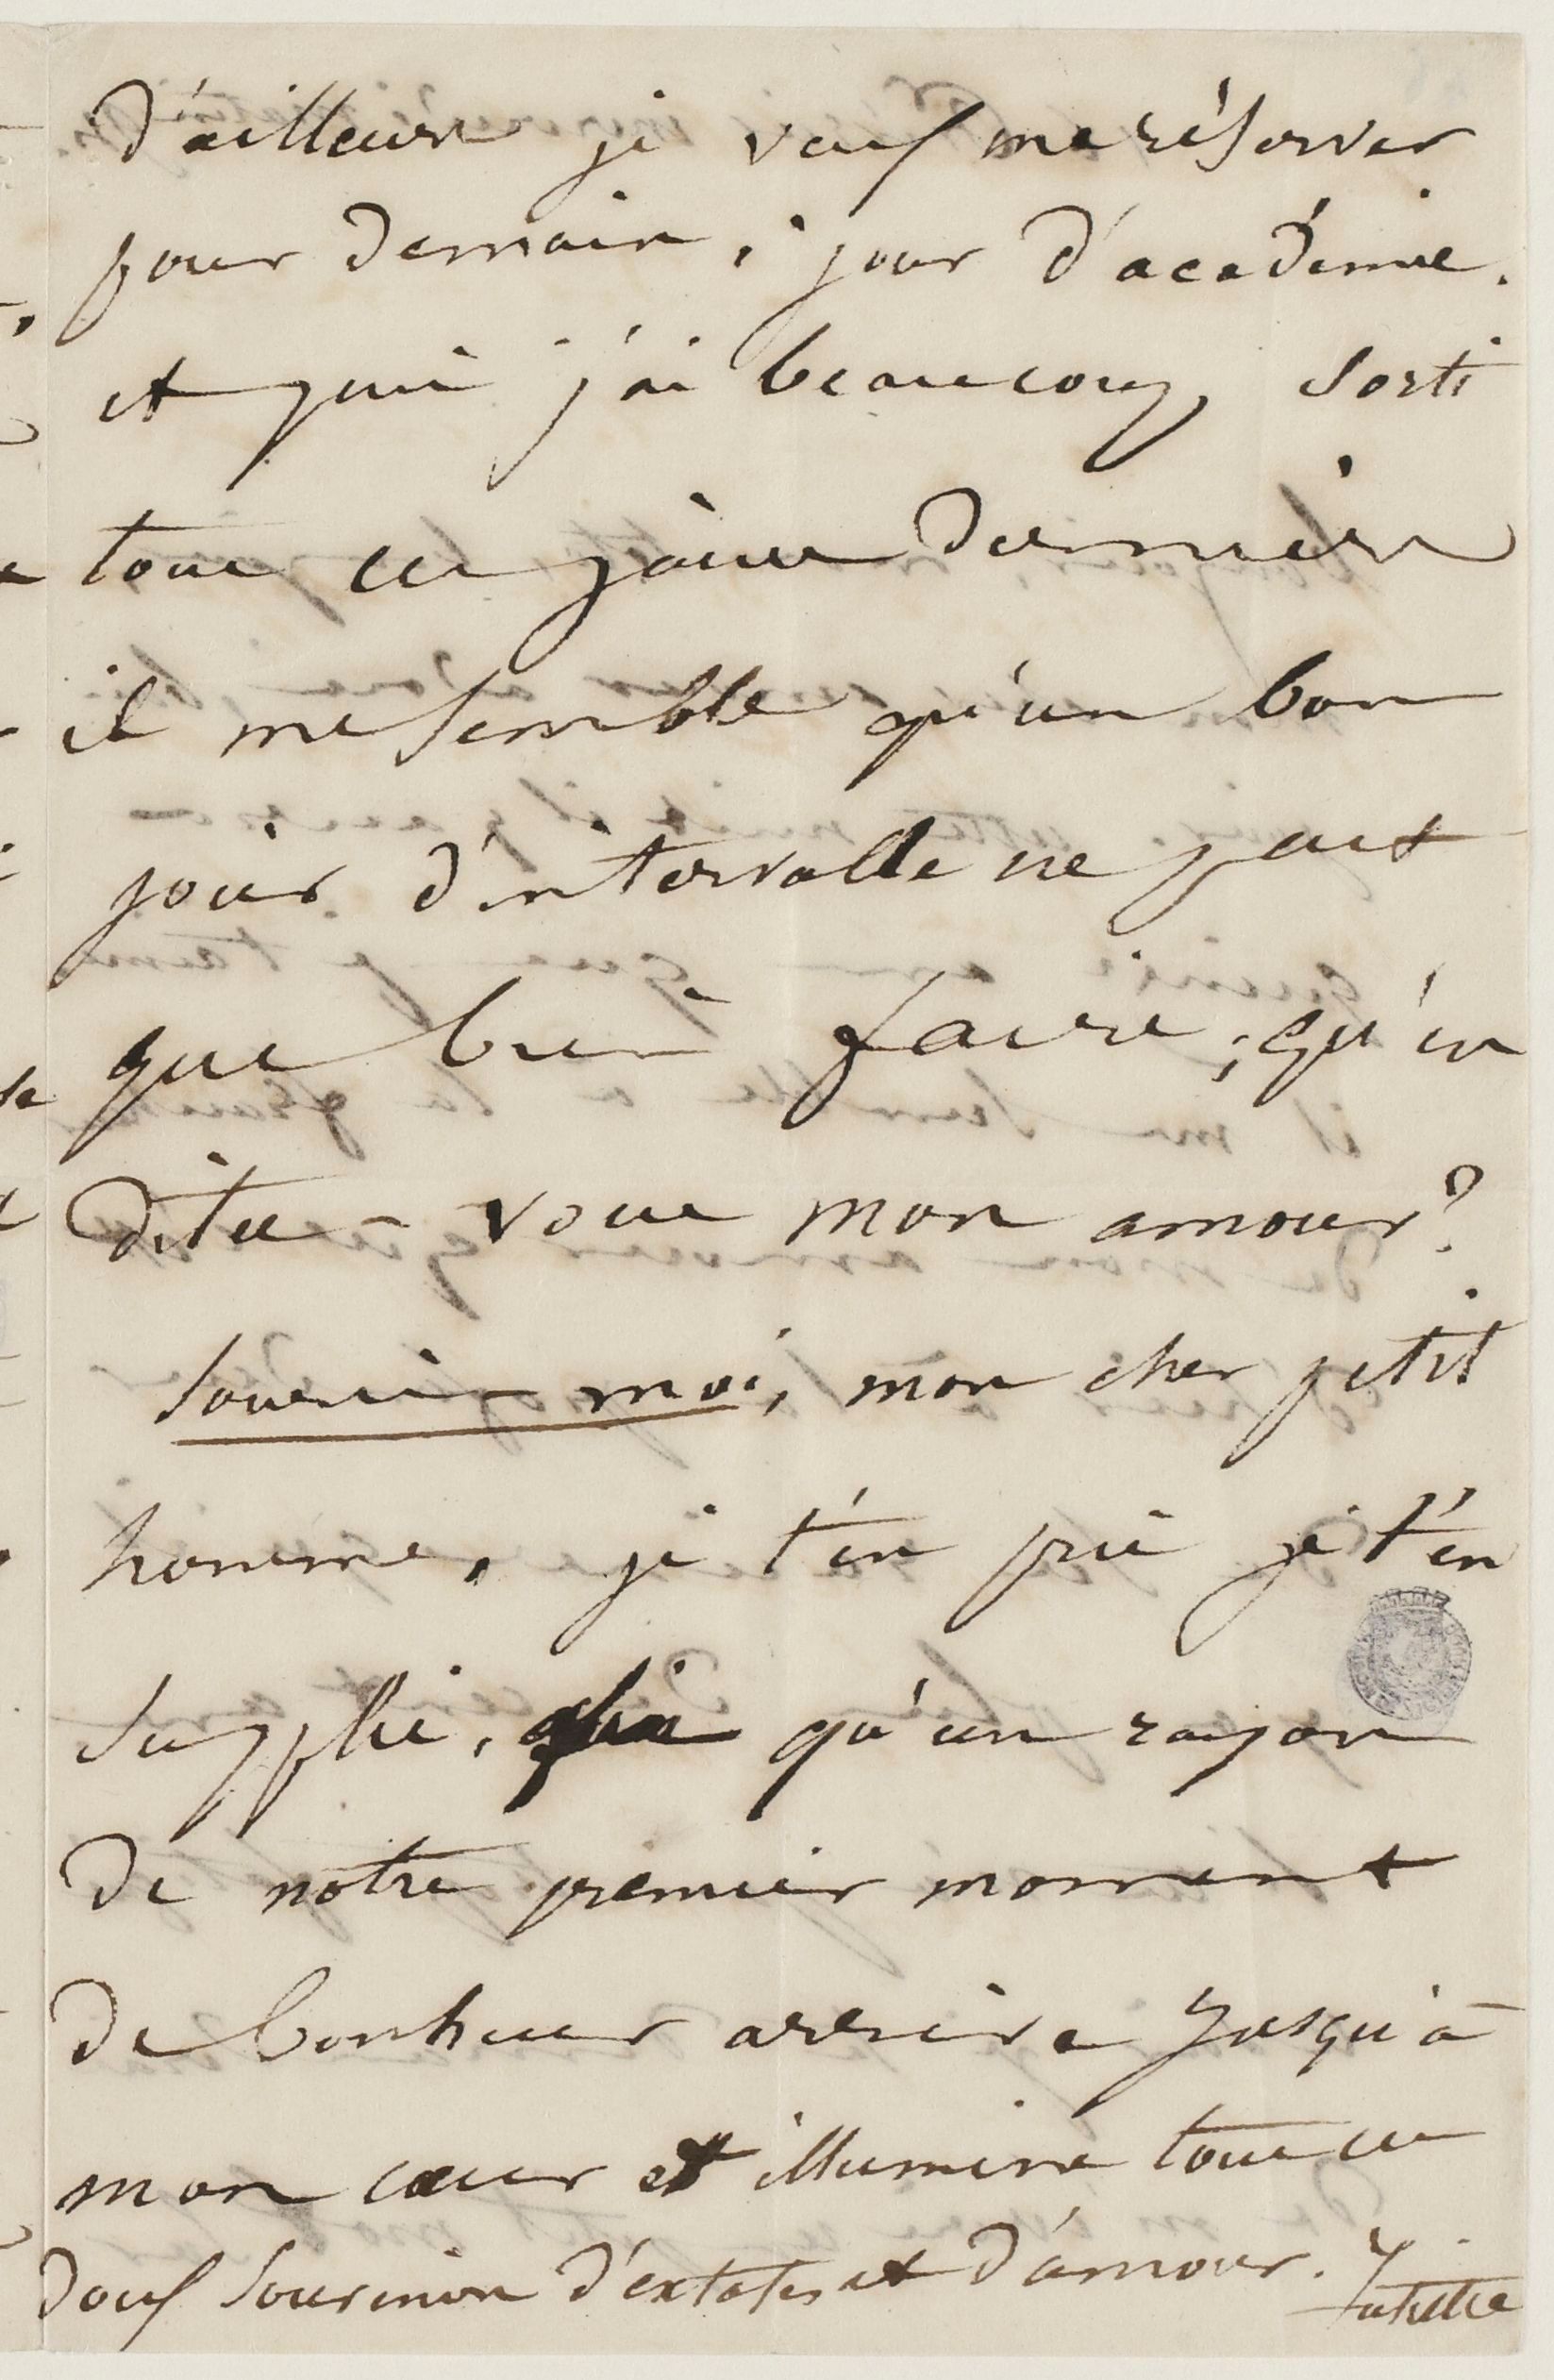 d'ailleurs je veux me réserver
pour demain, jour d'académie.
et puis j'ai beaucoup sorti
tous ces jours derniers
il me semble qu'un bon
jour d'intervalle ne peut
que bien faire ; qu'en
dites-vous mon amour ?
Souris-moi, mon cher petit
homme, je t'en prie je t'en
supplie, qu'un rayon
de notre premier moment
de bonheur arrive jusqu'à
mon cœur et illumine tous ces
doux souvenirs d'extases et d'amour. Juliette